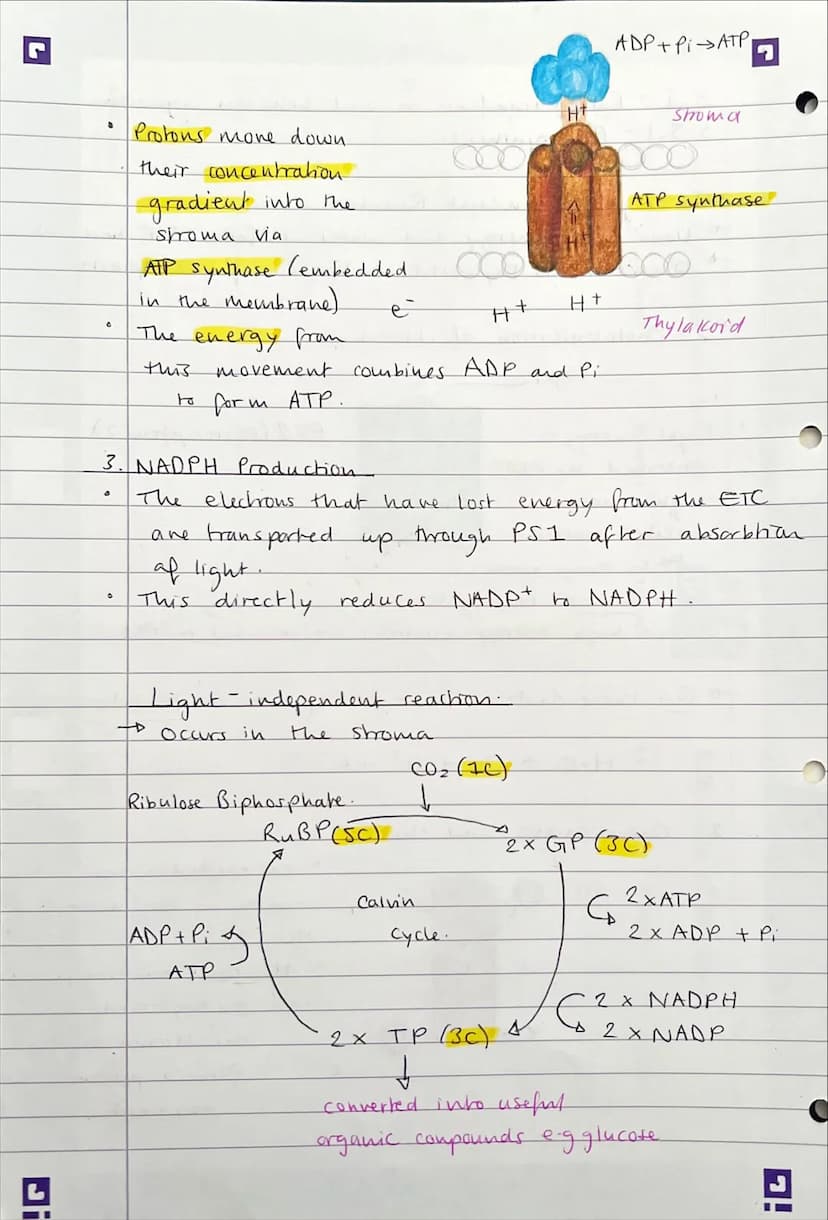 ADP + Pi → ATP
H+
Stroma
• Protons move down
their concentration
gradient into the
stroma via
ATP synthase (embedded
in the membrane)
ATP synthase
H+
e- H+ H+
Thylakoid
• The energy from
this movement combines ADP and Pi
to form ATP.
3. NADPH Production
• The electrons that have lost energy from the ETC
are transported up through PS1 after absorbtion
of light.
• This directly reduces NADP+ to NADPH.
Light-independent reaction.
→ Occurs in the stroma
CO₂ (1C)
↓
Ribulose Biphosphate.
RuBP (5C)
2x GP (3C)
Calvin
cycle.
2 x ATP
2 x ADP + Pi
ADP + Pi
ATP
2 x NADPH
2 x NADP
2 x TP (3C)
↓
converted into useful
organic compounds e.g glucose